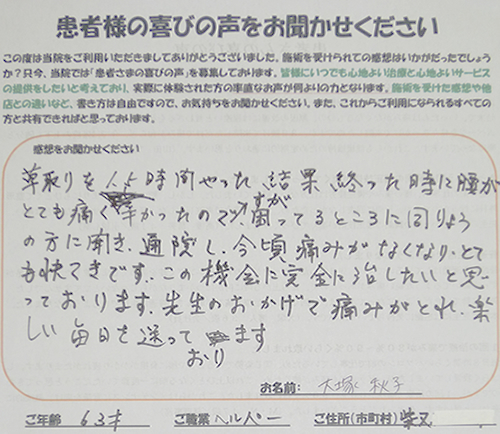 患者様の喜びの声をお聞かせください
この度は当院をご利用いただきましてありがとうございました。施術を受けられての感想はいかがだったでしょ
うか？只今、当院では「患者さまの喜びの声」を募集しております。皆様にいつでも心地よい治療と心地よいサービス
の提供をしたいと考えており、実際に体験された方の率直なお声が何よりの力となります。施術を受けた感想や他
店との違いなど、書き方は自由ですので、お気持ちをお聞かせください。また、これからご利用になられるすべての
方と共有できればと思っております。
感想をお聞かせください
草取りを 時間やった結果 終った時に腰が
とても痛く辛かったのですが、困ってるところに同りょう
の方に聞き、通院し、今頃痛みがなくなり、とて
も快てきです。この機会に完全に治したいと思
っております。先生のおかげで痛みがとれ、楽
しい毎日を送って おります
お名前: 大塚 秋子
ご年齢 63才 ご職業 ヘルパー ご住所(市町村) 柴又